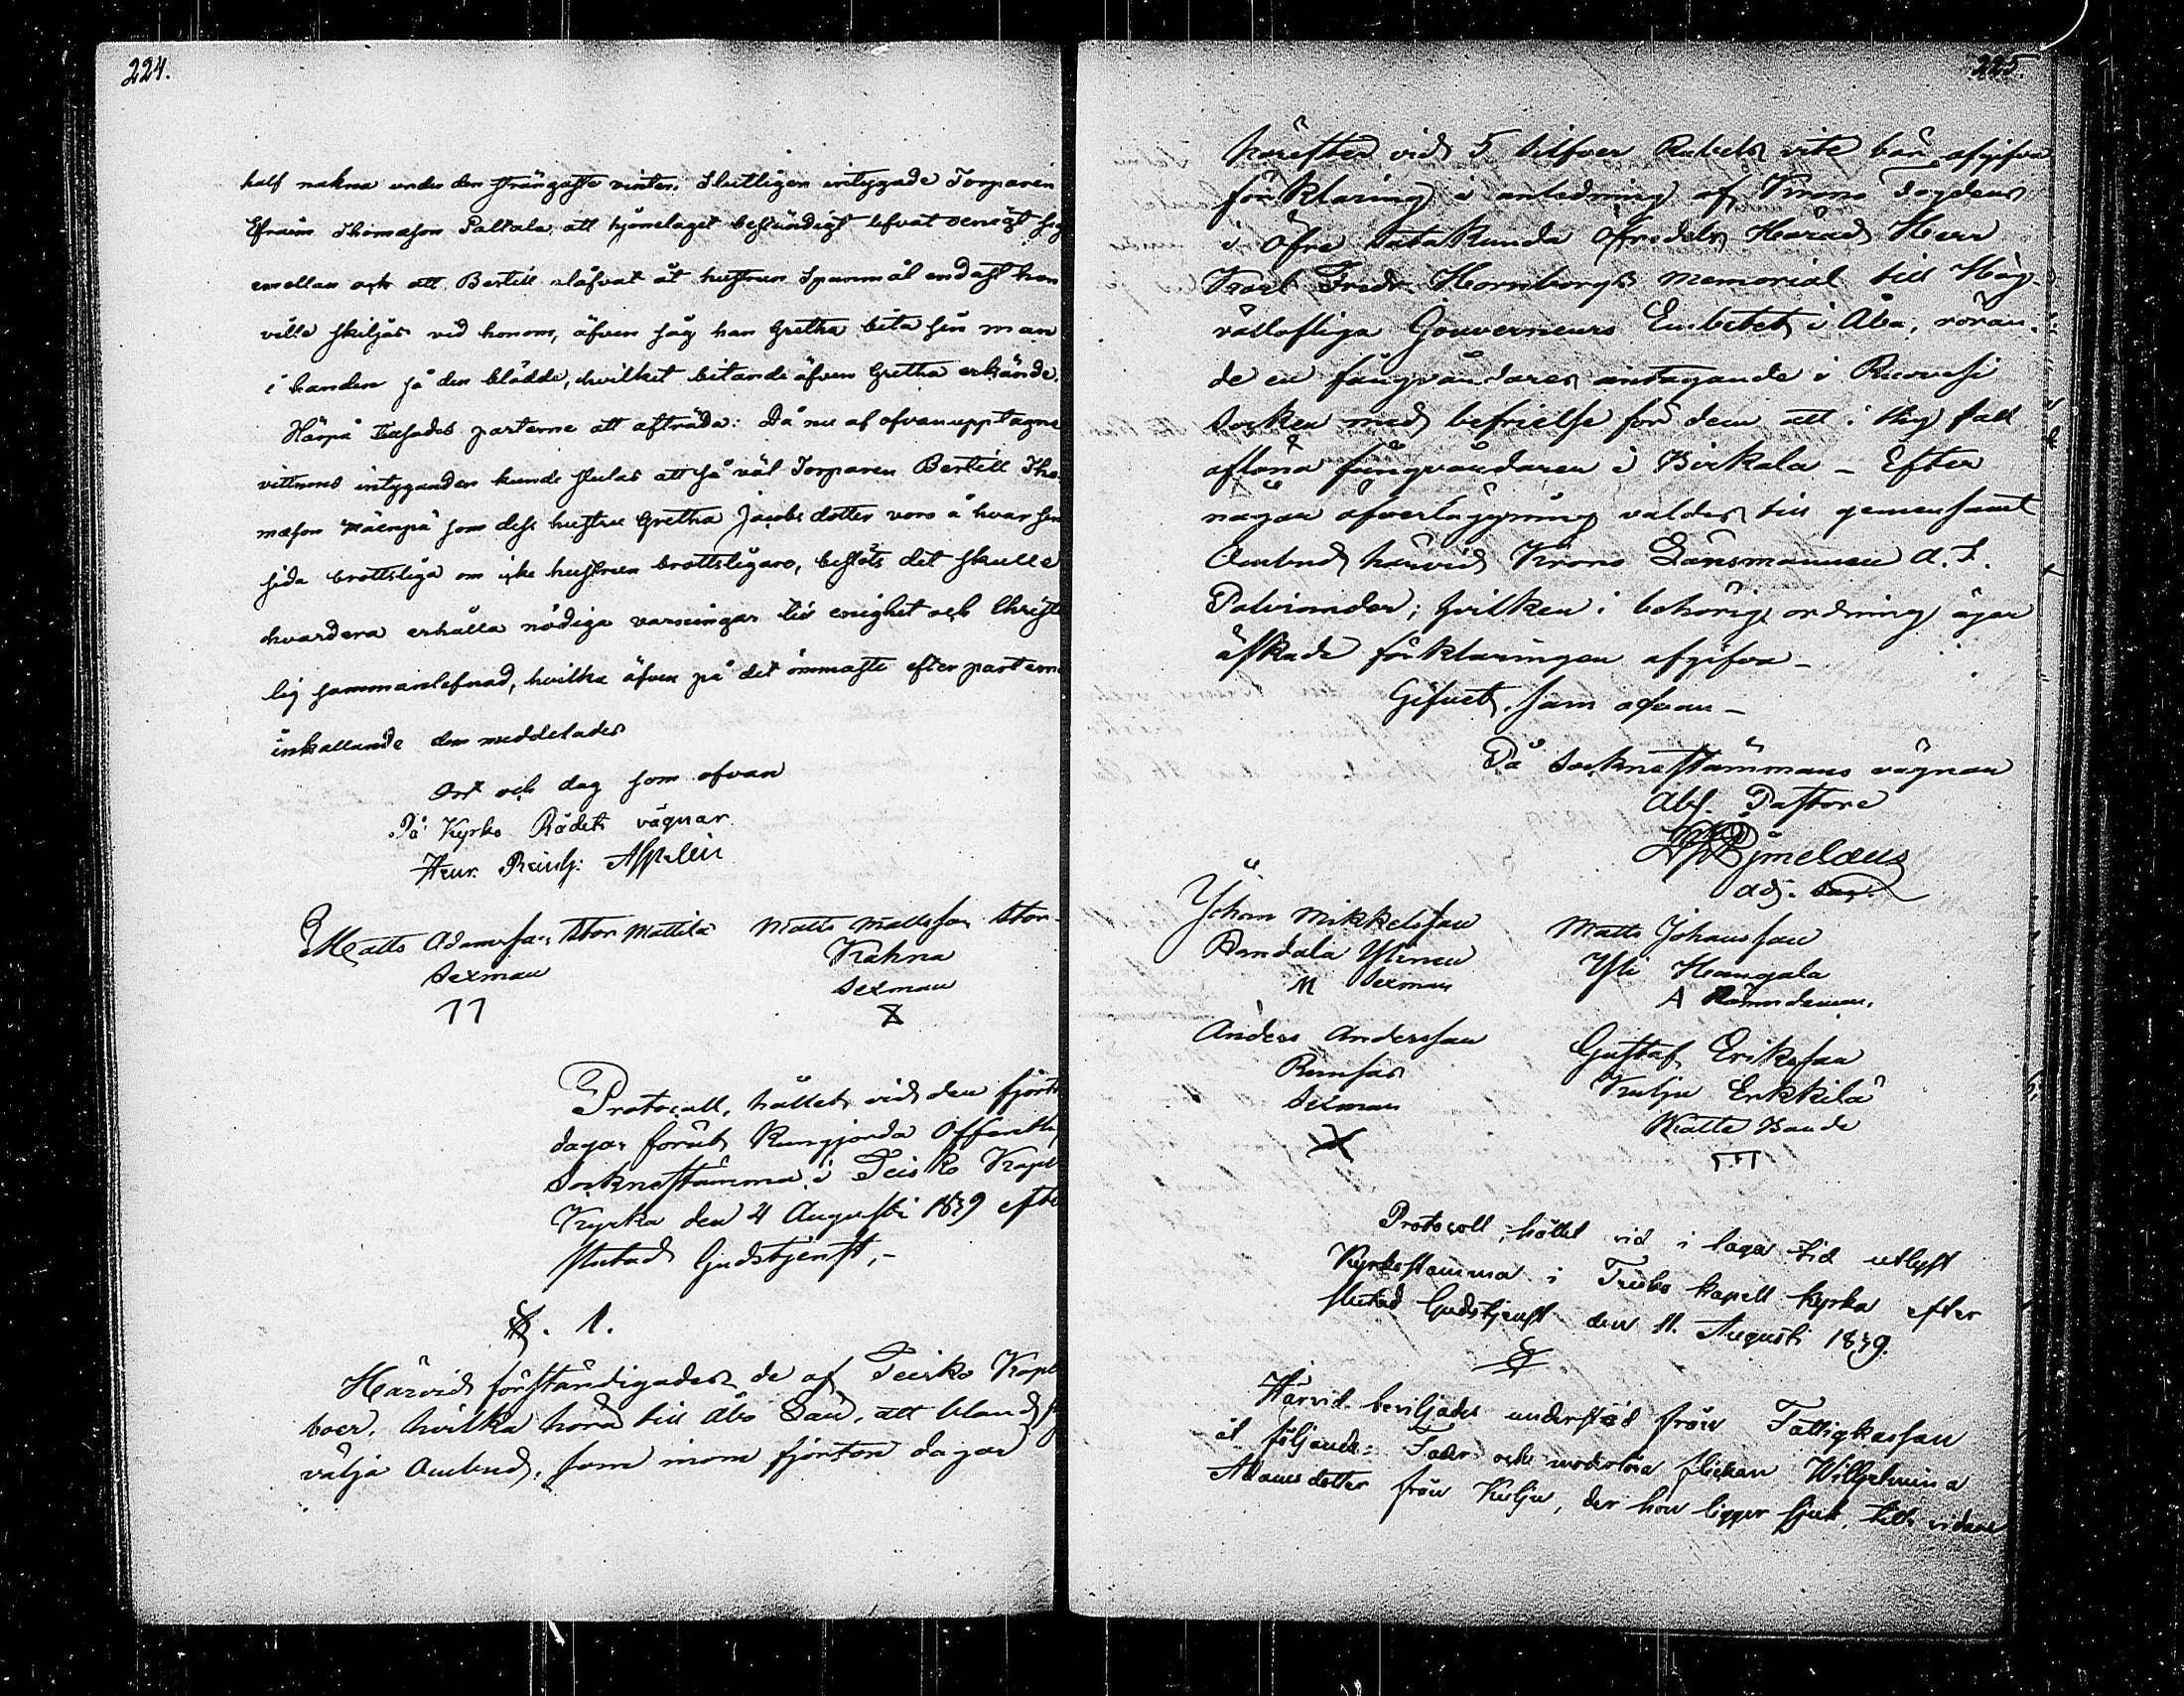 224.
half nakna under den strängaste vinter. Slutligen intygade Torparen
Efraim Thomason Paltala, att hjonelaget beständigt lefvat oenigt sig
emellan och att Bertill slafvat åt hustrun Spanmål endast hon
ville skiljas vid honom, äfven såg han Gretha bita sin man
i handen så den blödde, hvilket bitande äfven Gretha erkände.
Härpå tillsades parterne att afträda: Då nu af ofvanupptagne
vittnens intyganden kunde slutas att så väl Torparen Bertill Tho-
mason Mäenpä som dess hustru Gretha Jacobsdotter voro å hvar sin
sida brottsliga om icke hustrun brottsligare, beslöts det skulle
hvardera erhålla nödiga varningar till enighet och Christe
lig sammanlefnad, hvilka äfven på det ömmaste efter parterne
inkallande dem meddelades
Ort och dag som ofvan
På Kyrko Rådets vägnar
Henr. Reinh: Aspelin
Matts Adamsson Stor Mattila Matts Mattsson Stor-
Sexman Kahna
Sexman
Protocoll, hållet vid den fjort
dagar förut Kungjorda Offentlig
Socknestämma i Teisko Kapell
Kyrka den 4 Augusti 1839 efter
slutad Gudstjenst,-
§. 1.
Härvid förständigades de af Teisko Kapell
boer, hvilka höra till Åbo Län, att bland sig
välja Ombud, som inom fjorton dagar
225.
härefter vid 5 Silfver Rubels vite bör afgifva
förklaring i anledning af Krono Fogdens
i Öfre Satakunda Öfredels Härad Herr
Karl Fredr. Hornborgs Memorial till Hög-
välloflige Gouverneurs Embetet i Åbo, röran-
de en fångvårdares antagande i Ruovesi
Socken med befrielse för dem att i slig fall
aflöna fångvårdaren i Birkala - Efter
någon öfverläggning valdes till gemensamt
Ombud härvid Krono Länsmannen A. F.
Palviander; hvilken i behörig ordning äger
äskade förklaringen afgifva -
Gifvet, som ofvan -
På Socknestämmans vägnar
Abs. Pastore
Bjmelæus
adj. Sac.
Johan Mikkelsson Matts Johansson
Pandala Ylinen Yli Hangala
M Sexman A Nämndeman.
Anders Andersson Gustaf Eriksson
Rimsas Kulju Erkkilä
Sexman Kätte bonde
Protocoll, hållet vid i laga tid utlyst
Kyrkostämma i Teisko kapell kyrka efter
slutad Gudstjenst den 11. Augusti 1839.
§
Härvid beviljades understöd från Fattigkassan
åt följande: Fader och moderlösa flickan Wilhelmina
Adamsdotter från Kulju, der hon ligger sjuk, tills vidare